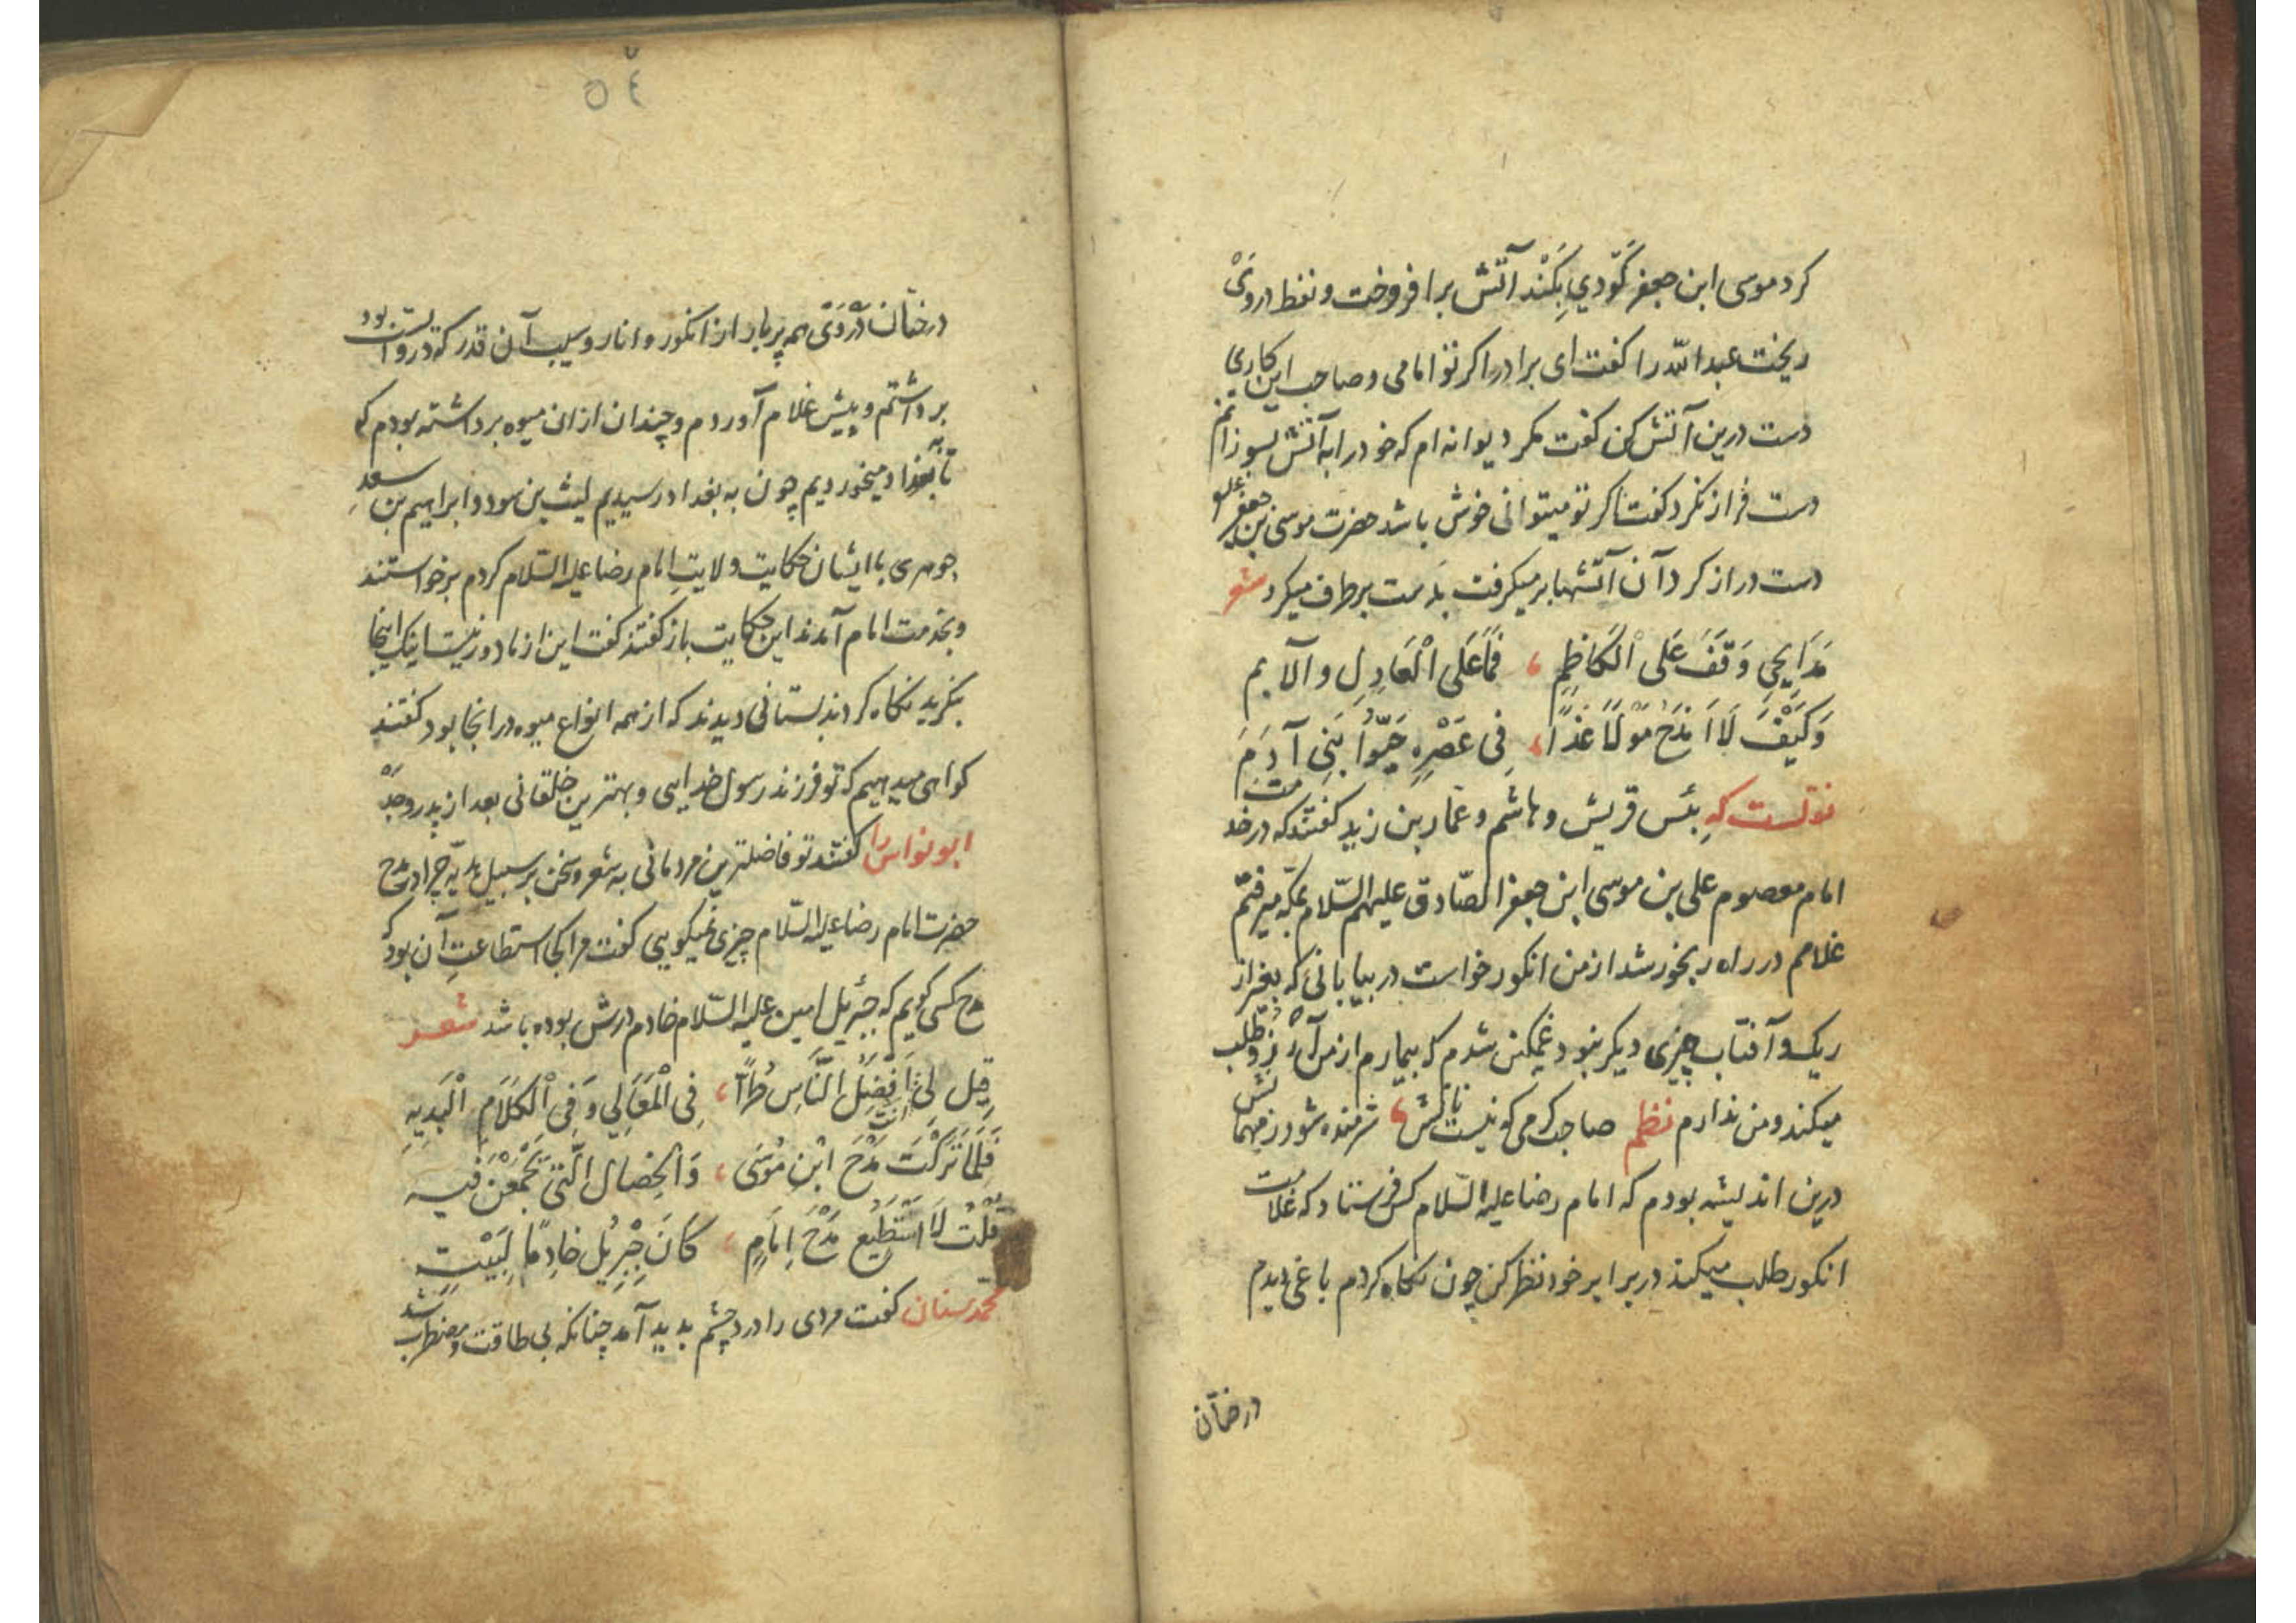 کرد موسی ابن جعفر گودی بکند آتش برافروخت و نفط در وی
ریخت عبدالله را کفت ای برادر اکر تو امامی و صاحب این کاری
دست درین آتش کن کفت مکر دیوانه ام که خود را به آتش بسوزانم
دست فراز نکرد کفتا کر تو میتوانی خوش باشد حضرت موسی بن جعفر
دست دراز کرد آن آتشها بر میکرفت بدست برطرف میکرد شعر
مَدَایِحِی وَقَفَ عَلَی الْکَاظِمِ ، فَمَا عَلَی الْعَاذِلِ و آلایم
وَکَیْفَ لَا اَمْدَحُ مَوْلًا غَدَا ، فِی عَصْرِهِ خَیْرُ بَنِی آدَمَ
نقلست که بئس قریش و هاشم و عمار بن زید کفتند که در خدمت
امام معصوم علی بن موسی ابن جعفر الصّادق علیهم السّلام بمکّه میرفتم
غلامم در راه رنجور شد از من انکور خواست در بیابانی که بغیر از
ریک و آفتاب چیزی دیکر نبود غمکین شدم که بیمارم از من آرزو طلب
میکند و من ندارم نظم صاحب کرمی کو نیست ناکش ، شرمنده شود ز میهمانش
درین اندیشه بودم که امام رضا علیه السّلام کس فرستاد که غلامت
انکور طلب میکند در برابر خود نظر کن چون نکاه کردم باغی دیدم
درختان
٥٤
درختان در وی همه پر بار از انکور و انار و سیب آن قدر که توانست بود
برداشتم و پیش غلام آوردم و چندان ازان میوه برداشته بودم که
تا به بغداد میخوردیم چون به بغداد رسیدیم لیث بن سود و ابراهیم بن سعد
جوهری با ایشان حکایت ولایت امام رضا علیه السّلام کردم برخواستند
و بخدمت امام آمدند این حکایت باز کفتند کفت این از ما دور نیست اینک اینجا
بنکرید نکاه کردند بستانی دیدند که از همه انواع میوه در انجا بود کفتند
کواهی میدهیم که تو فرزند رسول خدایی و بهترین خلقانی بعد از پدر و جدّ
ابو نواس را کفتند تو فاضلترین مردمانی به شعر و سخن بر سبیل بدیه چرا در مدح
حضرت امام رضا علیه السّلام چیزی نمیکویی کفت مرا کجا استطاعت آن بود که
مدح کسی کویم که جبرئیل امین علیه السّلام خادم درش بوده باشد شعر
قِیلَ لِی اَنْتَ اَفْضَلُ النَّاسِ طُرًّا ، فِی الْمَعَالِی وَفِی الْکَلَامِ الْبَدِیهِ
فَلِمَا تَرَکْتَ مَدْحَ ابْنِ مُوسَی ، وَالْخِصَالِ الَّتِی تَجَمَّعْنَ فِیه
قُلْتُ لَا اَسْتَطِیعُ مَدْحَ اِمَامٍ ، کَانَ جِبْرِیلُ خَادِمًا لِبَیْتِ
محمّد سنان کفت مردی را درد چشم بدید آمد چنانکه بی طاقت و مضطرب شد